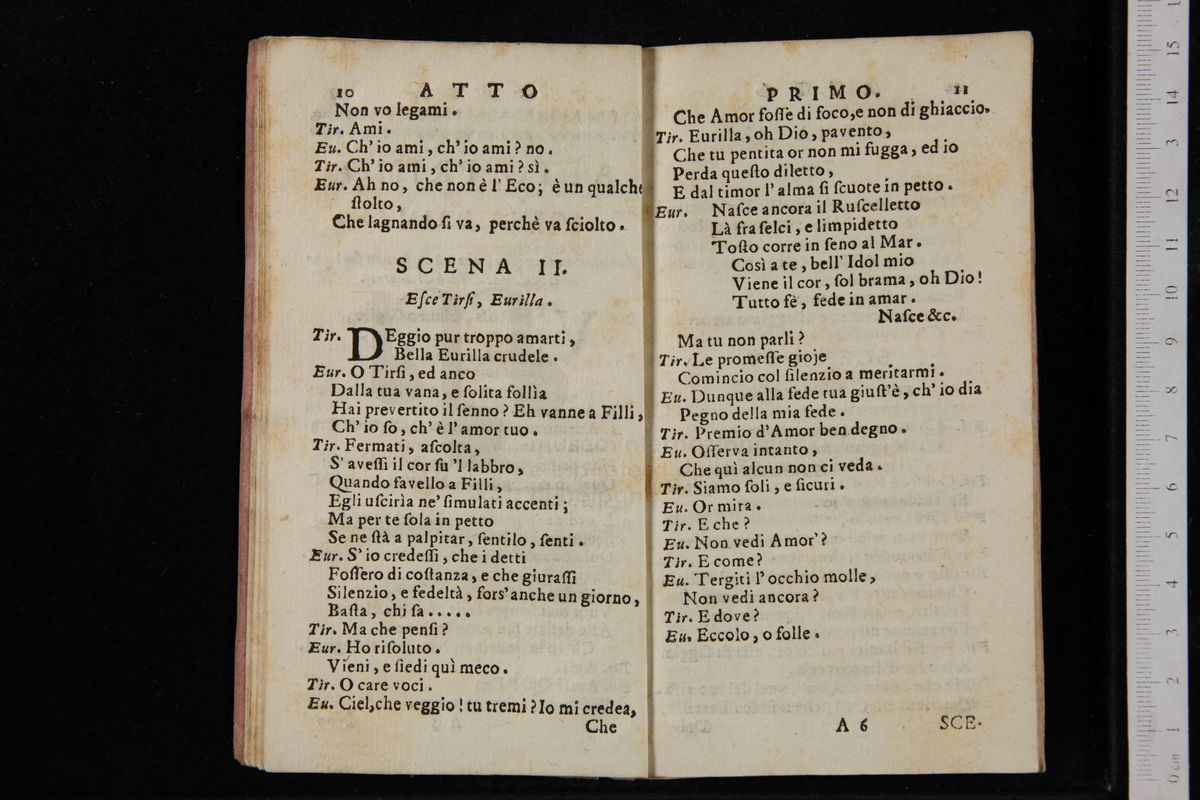 10 ATTO
Non vo legami.
Tir. Ami.
Eu. Ch' io ami, ch' io ami? no.
Tir. Ch' io ami, ch' io ami? sì.
Eur. Ah no, che non è l' Eco; è un qualche
ſtolto,
Che lagnando ſi va, perchè va ſciolto.
SCENA II.
Eſce Tirſi, Eurilla.
Tir. DEggio pur troppo amarti,
Bella Eurilla crudele.
Eur. O Tirſi, ed anco
Dalla tua vana, e ſolita follìa
Hai prevertito il ſenno? Eh vanne a Filli,
Ch' io ſo, ch' è l' amor tuo.
Tir. Fermati, aſcolta,
S' aveſſi il cor ſu 'l labbro,
Quando favello a Filli,
Egli uſcirìa ne' ſimulati accenti;
Ma per te ſola in petto
Se ne ſtà a palpitar, ſentilo, ſenti.
Eur. S' io credeſſi, che i detti
Foſſero di coſtanza, e che giuraſſi
Silenzio, e fedeltà, fors' anche un giorno,
Baſta, chi ſa.....
Tir. Ma che penſi?
Eur. Ho riſoluto.
Vieni, e ſiedi quì meco.
Tir. O care voci.
Eu. Ciel, che veggio! tu tremi? Io mi credea,
Che
PRIMO. 11
Che Amor foſſe di foco, e non di ghiaccio.
Tir. Eurilla, oh Dio, pavento,
Che tu pentita or non mi fugga, ed io
Perda queſto diletto,
E dal timor l' alma ſi ſcuote in petto.
Eur. Naſce ancora il Ruſcelletto
Là fra ſelci, e limpidetto
Toſto corre in ſeno al Mar.
Così a te, bell' Idol mio
Viene il cor, ſol brama, oh Dio!
Tutto fè, fede in amar.
Naſce &c.
Ma tu non parli?
Tir. Le promeſſe gioje
Comincio col ſilenzio a meritarmi.
Eu. Dunque alla fede tua giuſt'è, ch' io dia
Pegno della mia fede.
Tir. Premio d'Amor ben degno.
Eu. Oſſerva intanto,
Che quì alcun non ci veda.
Tir. Siamo ſoli, e ſicuri.
Eu. Or mira.
Tir. E che?
Eu. Non vedi Amor'?
Tir. E come?
Eu. Tergiti l' occhio molle,
Non vedi ancora?
Tir. E dove?
Eu. Eccolo, o folle.
A 6 SCE-